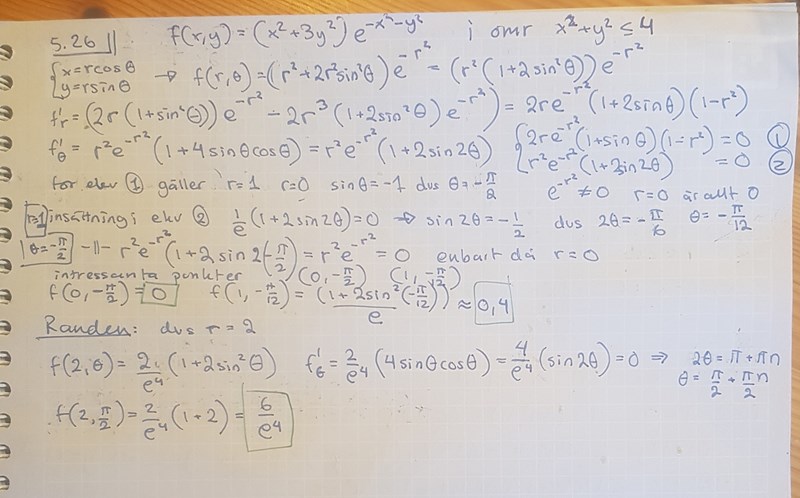 5.26 || f(x,y) = (x²+3y²) e^{-x²-y²} i omr x²+y² ≤ 4
{x=rcosθ y=rsinθ → f(r,θ) = (r²+2r²sin²θ) e^{-r²} = (r²(1+2sin²θ)) e^{-r²}
f'_r = (2r(1+sin²θ)) e^{-r²} - 2r³(1+2sin²θ) e^{-r²}) = 2re^{-r²}(1+2sinθ)(1-r²)
f'_θ = r²e^{-r²}(1+4sinθcosθ) = r²e^{-r²}(1+2sin2θ) {2re^{-r²}(1+sinθ)(1-r²) = 0 ① r²e^{-r²}(1+2sin2θ) = 0 ②
för ekv ① gäller r=1 r=0 sinθ=-1 dvs θ=-π/2 e^{-r²} ≠ 0 r=0 är allt 0
r=1 insättning i ekv ② 1/e (1+2sin2θ)=0 → sin2θ=-1/2 dvs 2θ=-π/6 θ=-π/12
θ=-π/2 -||- r²e^{-r²}(1+2sin2(-π/2) = r²e^{-r²} = 0 enbart då r=0
intressanta punkter (0,-π/2) (1,-π/12)
f(0,-π/2) = 0 f(1,-π/12) = (1+2sin²(-π/12))/e ≈ 0,4
Randen: dvs r=2
f(2,θ) = 2/e⁴ (1+2sin²θ) f'_θ = 2/e⁴ (4sinθcosθ) = 4/e⁴ (sin2θ) = 0 ⇒ 2θ = π+πn
θ = π/2 + π/2 n
f(2,π/2) = 2/e⁴ (1+2) = 6/e⁴